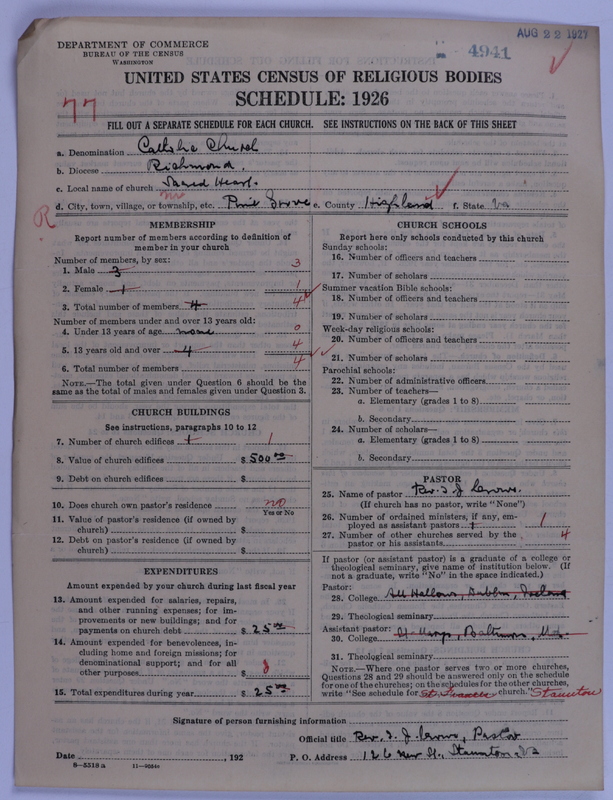 AUG 22 1927
4941
DEPARTMENT OF COMMERCE
BUREAU OF THE CENSUS
WASHINGTON
UNITED STATES CENSUS OF RELIGIOUS BODIES
SCHEDULE: 1926
77
FILL OUT A SEPARATE SCHEDULE FOR EACH CHURCH. SEE INSTRUCTIONS ON THE BACK OF THIS SHEET
a. Denomination Catholic Church
b. Diocese Richmond.
c. Local name of church Sacred Heart.
R d. City, town, village, or township, etc. Pine Grove e. County Highland f. State Va
MEMBERSHIP
Report number of members according to definition of
member in your church
Number of members, by sex:
1. Male 3 3
2. Female 1 1
3. Total number of members 4 4
Number of members under and over 13 years old:
4. Under 13 years of age none 0
5. 13 years old and over 4 4
6. Total number of members 4
NOTE.—The total given under Question 6 should be the
same as the total of males and females given under Question 3.
CHURCH BUILDINGS
See instructions, paragraphs 10 to 12
7. Number of church edifices 1 1
8. Value of church edifices $ 500 00
9. Debt on church edifices $
10. Does church own pastor's residence no
Yes or No
11. Value of pastor's residence (if owned by
church) $
12. Debt on pastor's residence (if owned by
church) $
EXPENDITURES
Amount expended by your church during last fiscal year
13. Amount expended for salaries, repairs,
and other running expenses; for im-
provements or new buildings; and for
payments on church debt $ 25 00
14. Amount expended for benevolences, in-
cluding home and foreign missions; for
denominational support; and for all
other purposes $
15. Total expenditures during year $ 25 00
CHURCH SCHOOLS
Report here only schools conducted by this church
Sunday schools:
16. Number of officers and teachers
17. Number of scholars
Summer vacation Bible schools:
18. Number of officers and teachers
19. Number of scholars
Week-day religious schools:
20. Number of officers and teachers
21. Number of scholars
Parochial schools:
22. Number of administrative officers
23. Number of teachers—
a. Elementary (grades 1 to 8)
b. Secondary
24. Number of scholars—
a. Elementary (grades 1 to 8)
b. Secondary
PASTOR
25. Name of pastor Rev. T. J. Crowe.
(If church has no pastor, write "None")
26. Number of ordained ministers, if any, em-
ployed as assistant pastors 1 1
27. Number of other churches served by the
pastor or his assistants 4
If pastor (or assistant pastor) is a graduate of a college or
theological seminary, give name of institution below. (If
not a graduate, write "No" in the space indicated.)
Pastor:
28. College All Hallows, Dublin, Ireland
29. Theological seminary
Assistant pastor:
30. College St Marys, Baltimore, Md.
31. Theological seminary
NOTE.—Where one pastor serves two or more churches,
Questions 28 and 29 should be answered only on the schedule
for one of the churches; on the schedules for the other churches,
write "See schedule for St. Francis church." Staunton
Signature of person furnishing information
Official title Rev. T. J. Crowe, Pastor
Date , 192 P. O. Address 126 New St., Staunton, Va
8-5318 a 11-9084